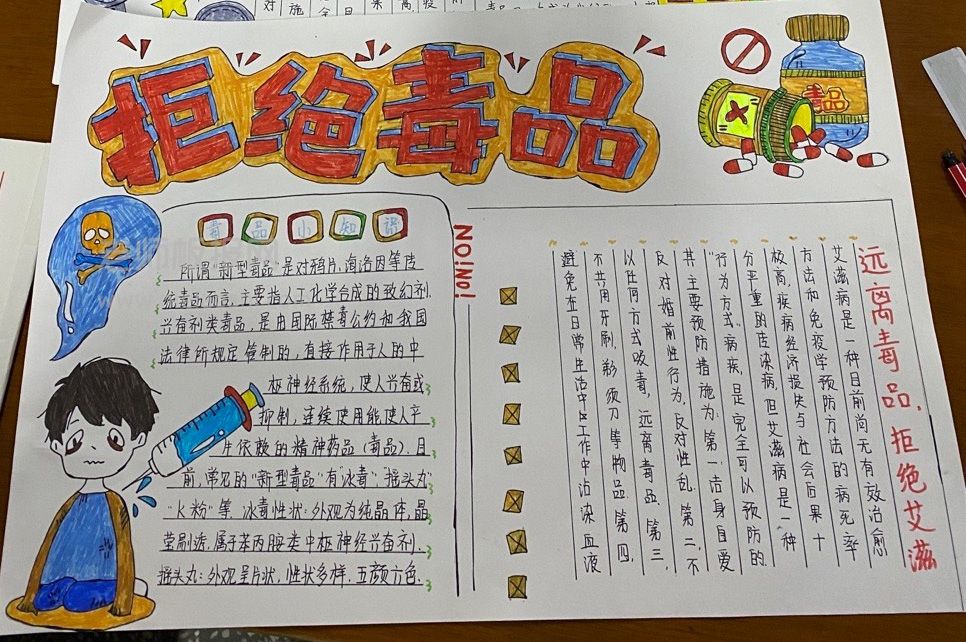 拒绝毒品
毒品
毒品小知识
所谓"新型毒品"是对鸦片、海洛因等传
统毒品而言,主要指人工化学合成的致幻剂、
兴奋剂类毒品,是由国际禁毒公约和我国
法律所规定管制的,直接作用于人的中
枢神经系统,使人兴奋或
抑制,连续使用能使人产
生依赖的精神药品(毒品),目
前,常见的"新型毒品"有"冰毒""摇头丸"
"K粉"等.冰毒性状:外观为纯晶体,晶
莹剔透,属于苯丙胺类中枢神经兴奋剂.
摇头丸:外观呈片状,性状多样,五颜六色.
NO!NO!
远离毒品,拒绝艾滋
艾滋病是一种目前尚无有效治愈
方法和免疫学预防方法的病死率
极高,疾病经济损失与社会后果十
分严重的传染病,但艾滋病是一种
"行为方式"疾病,是完全可以预防的.
其主要预防措施为:第一、洁身自爱
反对婚前性行为,反对性乱.第二、不
以任何方式吸毒,远离毒品.第三、
不共用牙刷、剃须刀等物品.第四、
避免在日常生活中工作中沾染血液